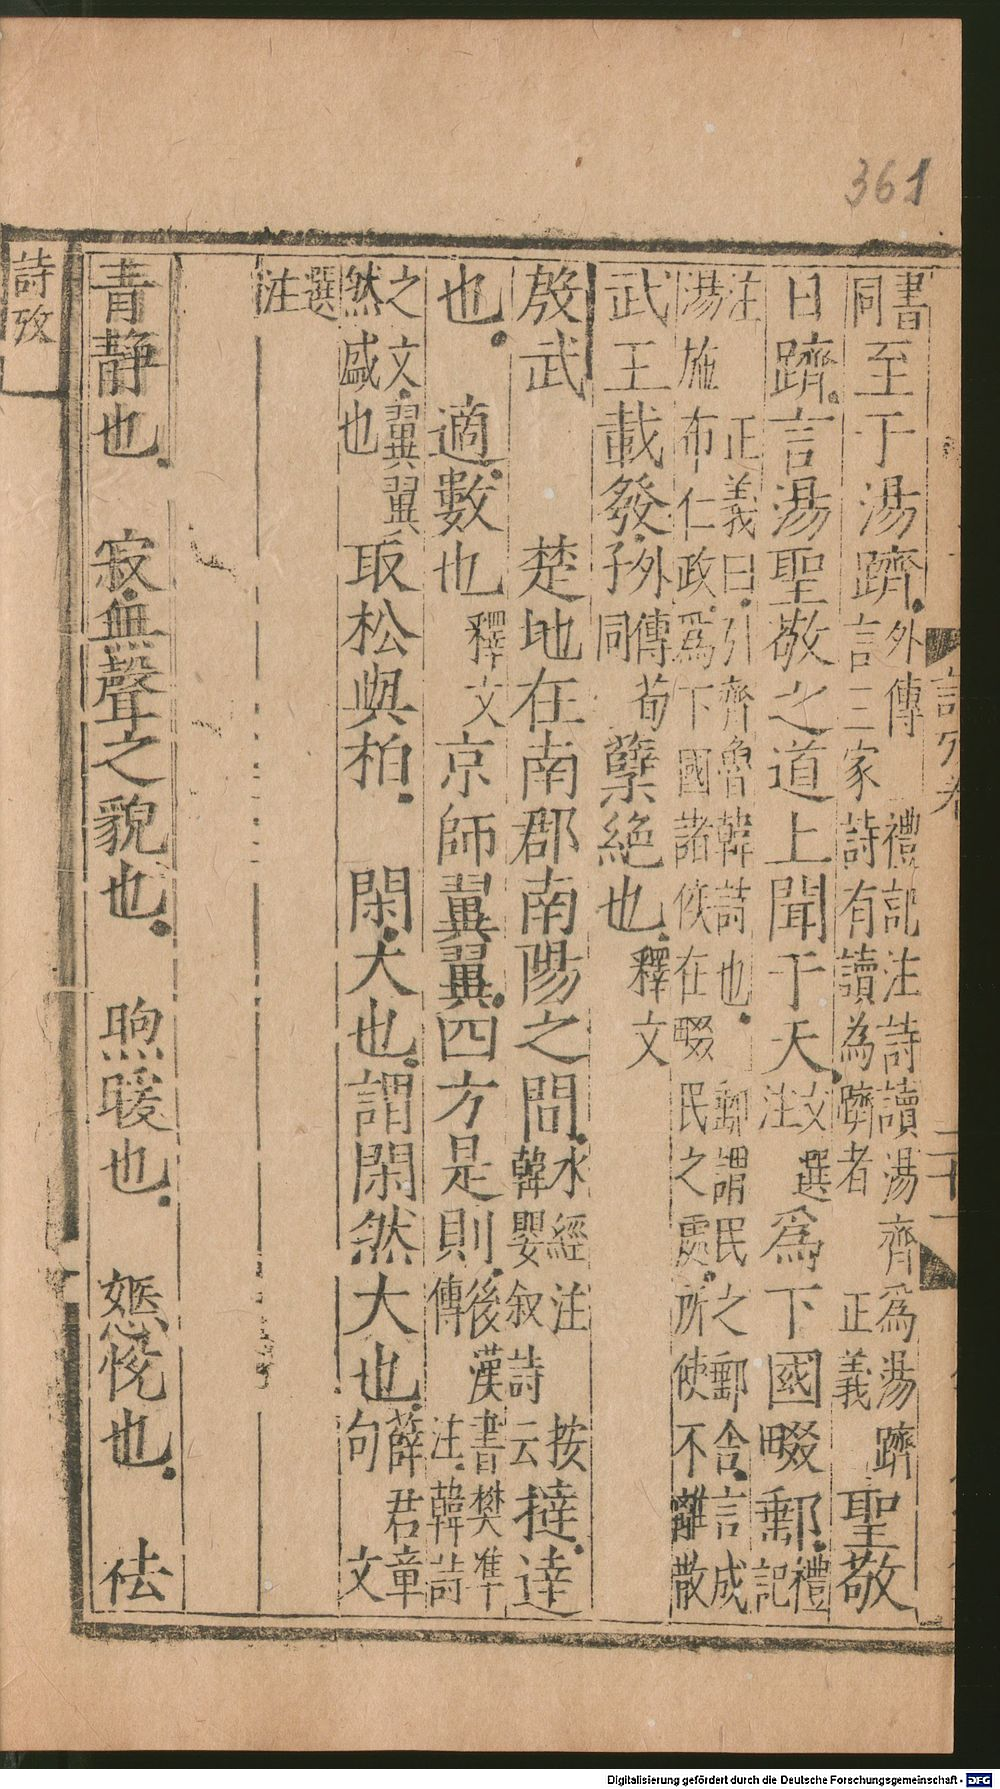 361
書同至于湯躋外傳言三家詩有讀為躋者禮記注詩讀湯齊爲湯躋正義聖敬
日躋言湯聖敬之道上聞于天文選注爲下國畷郵禮記
注湯施布仁政爲下國諸侯在畷民之處所使不離散正義曰引齊魯韓詩也郵謂民之郵舍言成
武王載發外傳荀子同櫱絕也釋文
殷武 楚地在南郡南陽之間水經注韓嬰叙詩云按撻達
也 適數也釋文京師翼翼四方是則後漢書樊準傳注韓詩
之文翼翼然盛也取松與柏 閑大也謂閑然大也薛君章句文
選注
青靜也 寂無聲之貌也 煦暖也 嫕悅也 祛
詩攷
Digitalisierung gefördert durch die Deutsche Forschungsgemeinschaft - DFG